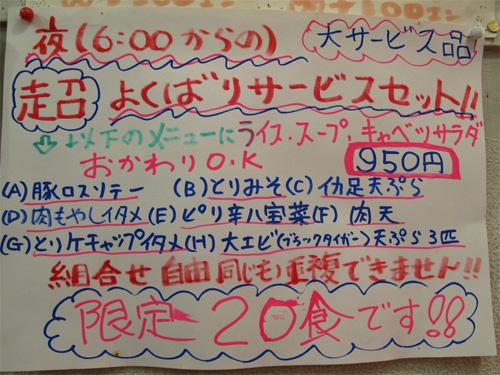 夜(6:00からの)
大サービス品
超 よくばりサービスセット!!
↓以下のメニューにライス・スープ、キャベツサラダ
おかわりO.K
950円
(A)豚ロスソテー (B)とりみそ(C)イカ足天ぷら
(D)肉もやしイタメ(E)ピリ辛八宝菜(F)肉天
(G)とりケチャップイタメ(H)大エビ(ブラックタイガー)天ぷら3匹
組合せ自由同じもの重複できません!!
限定20食です!!